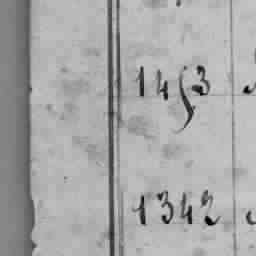 1453
1342